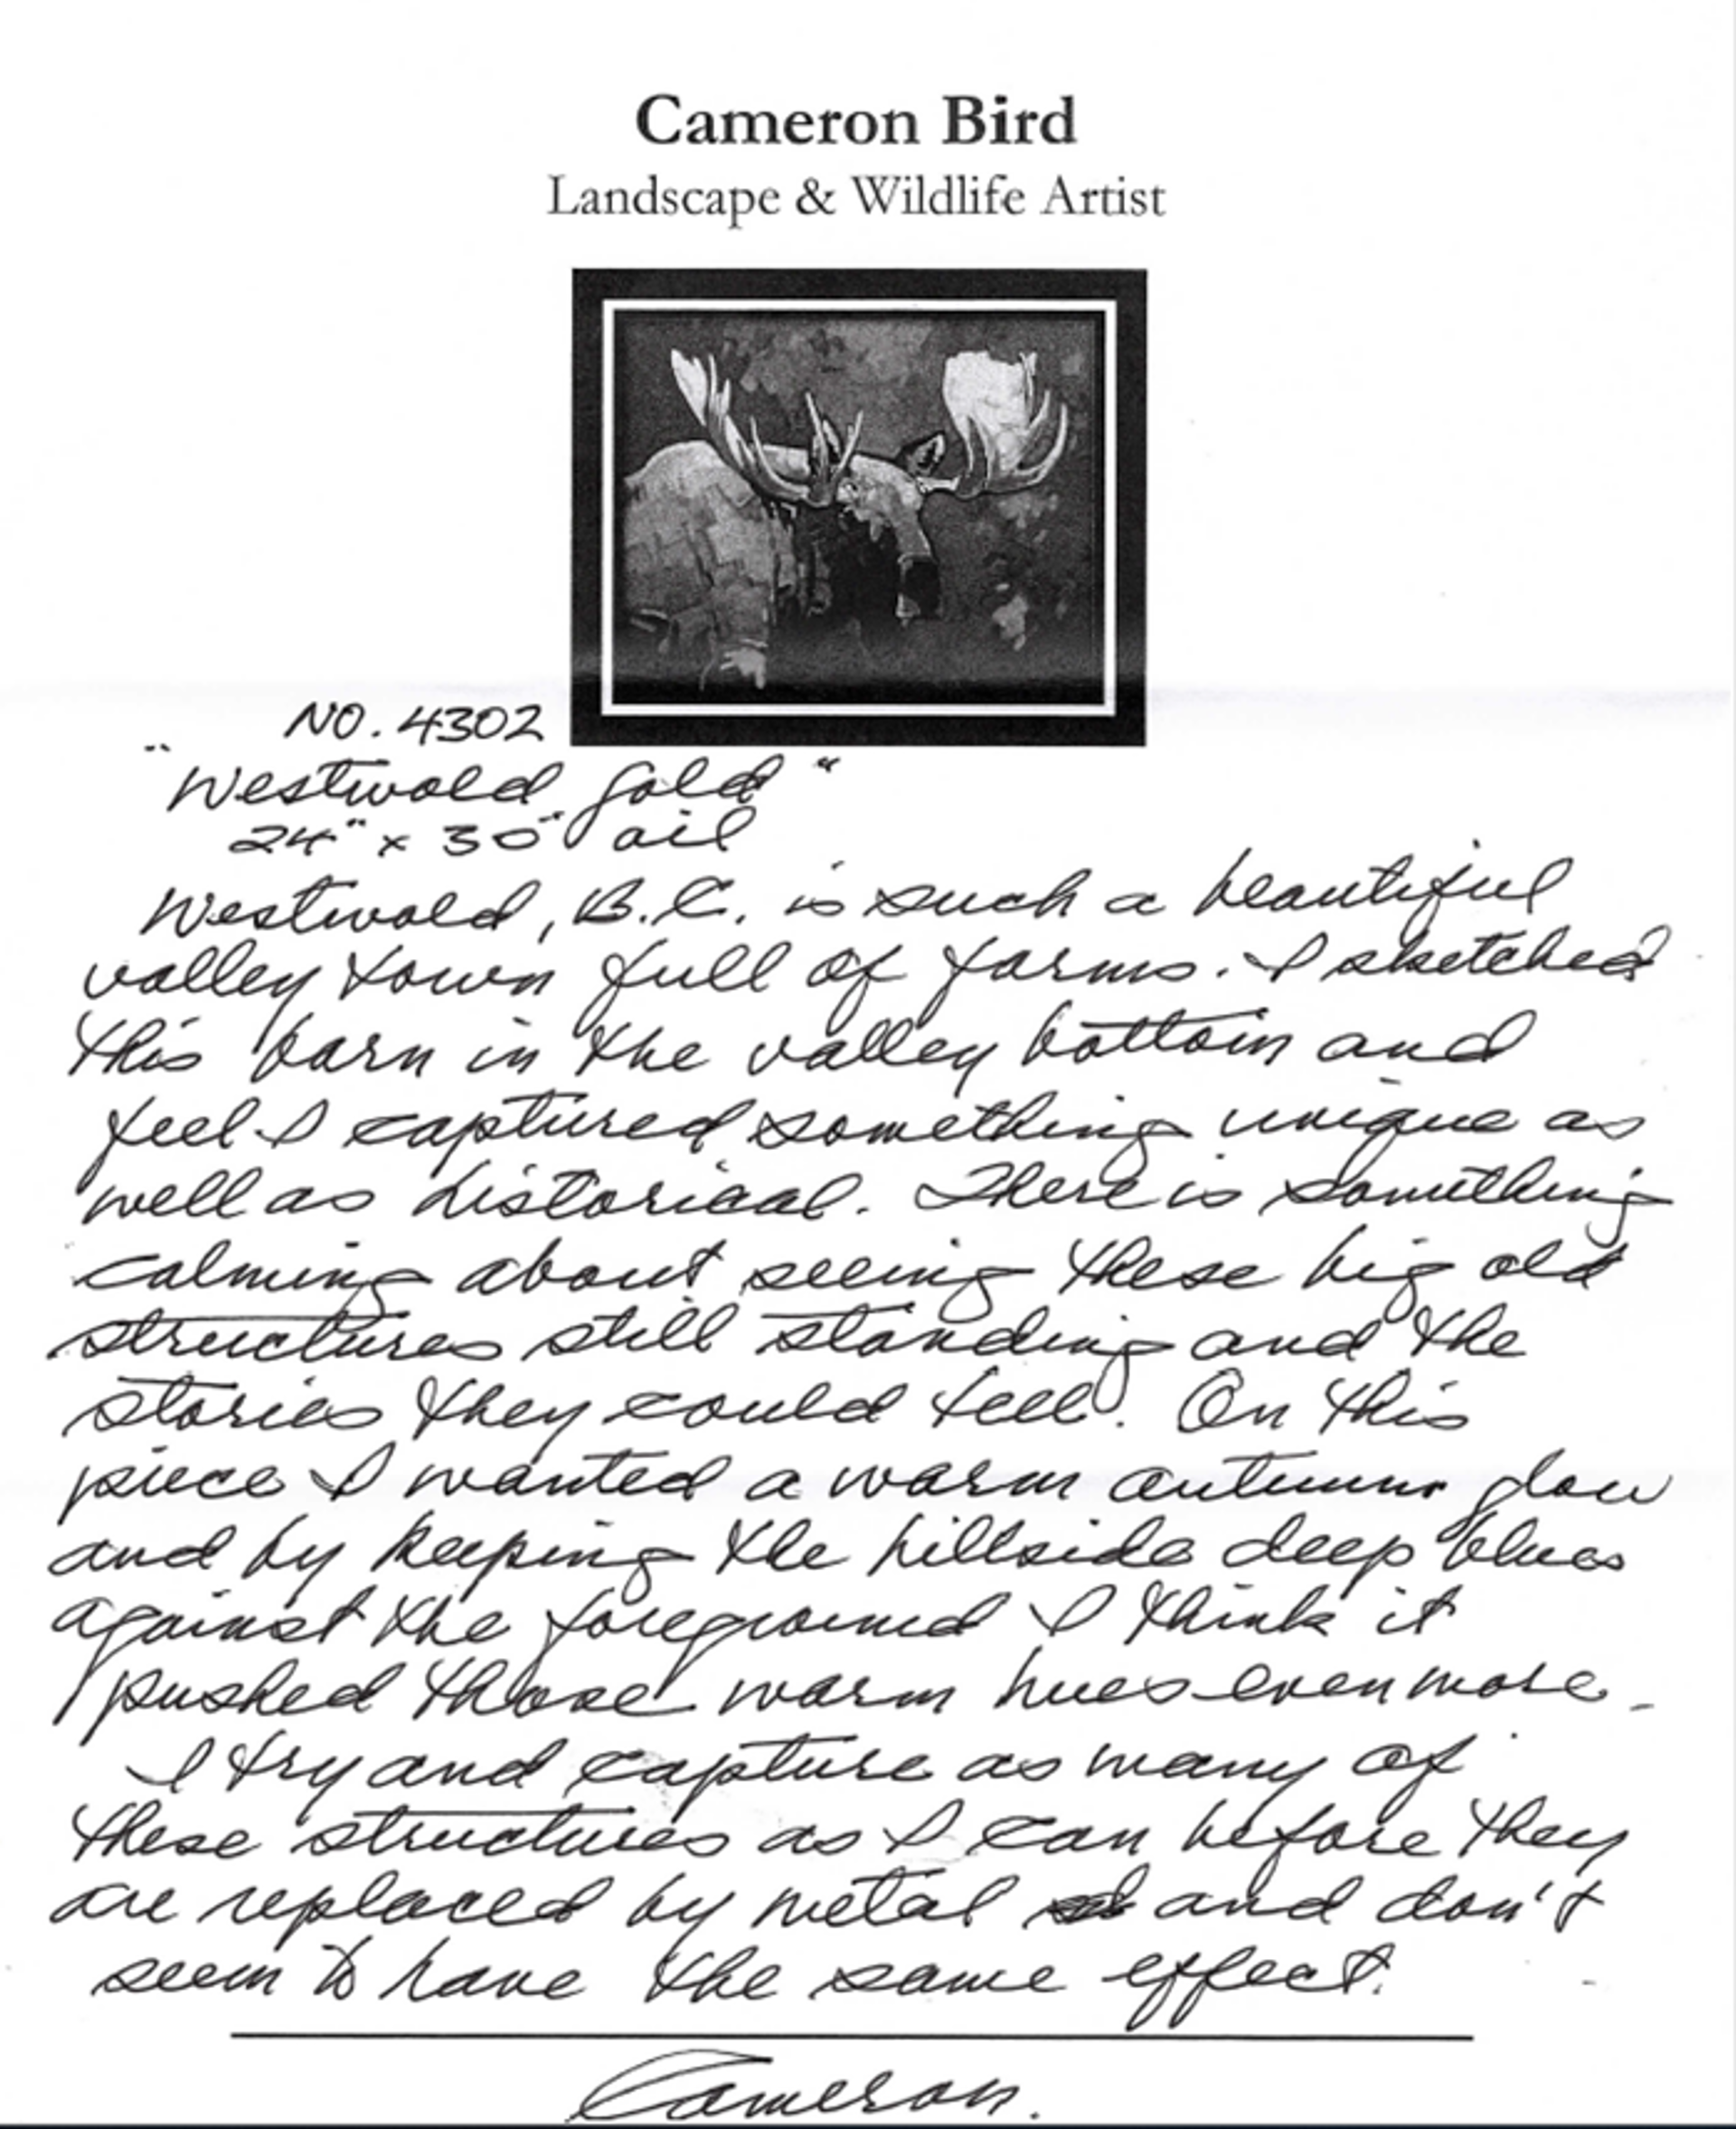 Cameron Bird
Landscape & Wildlife Artist
NO. 4302
"Westwold Gold"
24" x 30" oil
Westwold, B.C. is such a beautiful
valley town full of farms. I sketched
this barn in the valley bottom and
feel I captured something unique as
well as historical. There is something
calming about seeing these big old
structures still standing and the
stories they could tell. On this
piece I wanted a warm autumn glow
and by keeping the hillside deep blues
against the foreground I think it
pushed those warm hues even more.
I try and capture as many of
these structures as I can before they
are replaced by metal and don't
seem to have the same effect.
Cameron.